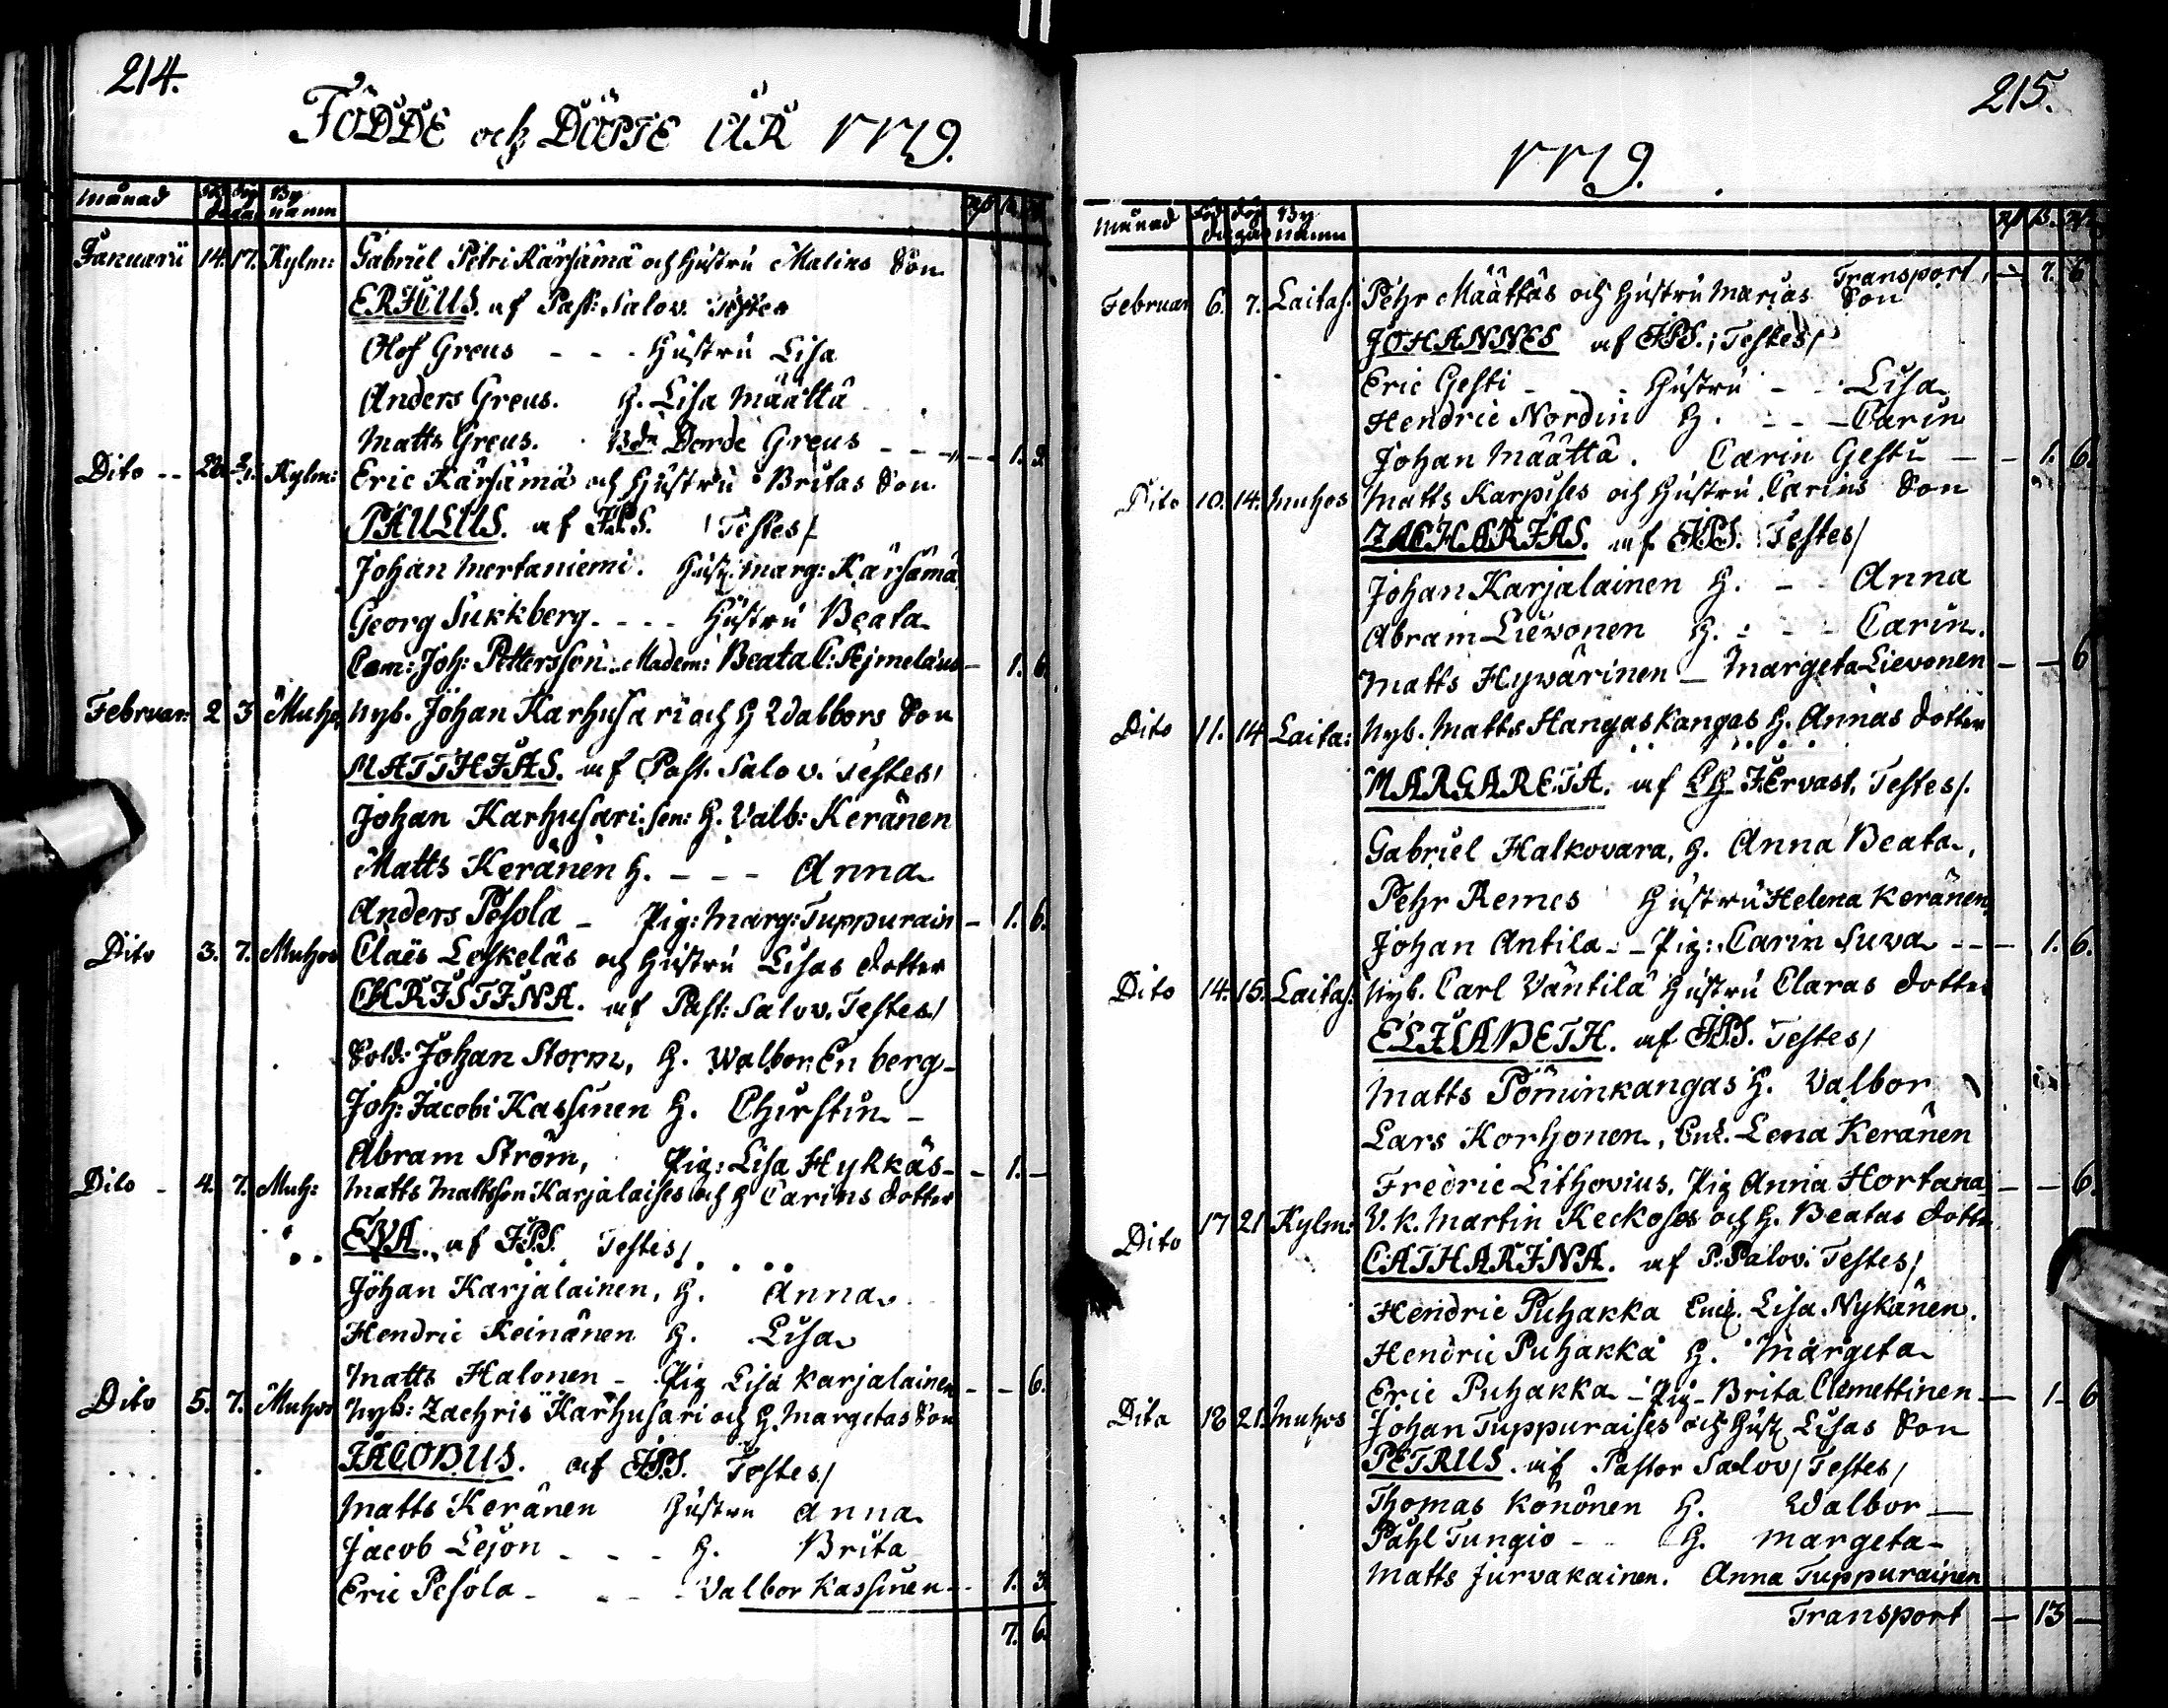 214.
FÖDDE och DÖPTE ÅR 1779.
Månad Föd. döp. dagar By namn
Januarii 14. 17. Kylm: Gabriel Petri Kärsämä och Hustru Malins Son
ERICUS. af Past: Salov. Testes
Olof Greus - - - Hustru Lisa
Anders Greus. H. Lisa Määttä
Matts Greus. Bdr Dorde Greus - - - 1. 3.
Dito - - Kylm: Eric Kärsämä och Hustru Britas Son
PAULUS. af J.P.S. Testes/
Johan Mertaniemi. Hust: Marg: Kärsämä
Georg Sukkberg - - - - Hustru Beata
Com: Joh: Pettersson. Madem: Beata C: Ajmelæus - 1. 6.
Februar: 2 3 Muhos Nyb. Johan Karhusari och H Walbors Son
MATTHIAS. af Past. Salov. Testes/
Johan Karhusari. sen: H. Valb: Keränen
Matts Keränen H. - - - Anna
Anders Pesola - Pig: Marg: Tuppurain - 1. 6.
Dito 3. 7. Muhos Claës Leskeläs och Hustru Lisas dotter
CHRISTINA. af Past: Salov. Testes/
Sold: Johan Storm, H. Walbor Enberg -
Joh: Jacobi Kassinen H. Chirstin -
Abram Ström, Pig: Lisa Hykkäs - - 1. -
Dito - 4. 7. Muh: Matts Mattsson Karjalaises och H Carins dotter
EVA. af J.P.S. Testes/
Johan Karjalainen, H. Anna
Hendric Keinänen H. Lisa
Matts Halonen - Pig Lisa Karjalainen - - 6.
Dito 5. 7. Muhos Nyb: Zachris Karhusari och H. Margetas Son
JACOBUS. af J.P.S. Testes/
Matts Keränen Hustru Anna
Jacob Lejon - - - H. Brita
Eric Pesola - - - - Valbor Kassinen - - 1. 3.
7. 6.
215.
1779.
Månad Föd. döp. dagar By namn
Transport - 7. 6
Februar 6. 7. Laitas. Pehr Määttäs och Hustru Marias Son
JOHANNES af J.P.S. Testes/
Eric Gesti - - - Hustru - - Lisa
Hendric Nordin H. - - - Carin
Johan Määttä. Carin Gesti - - 1. 6.
Dito 10. 14. Muhos Matts Karpises och Hustru Carins Son
ZACHARIAS. af J.P.S. Testes/
Johan Karjalainen H. - - Anna
Abram Lievonen H. - - - Carin.
Matts Hywärinen - Margeta Lievonen - - 6
Dito 11. 14 Laita: Nyb. Matts Hangaskangas H. Annas dotter
MARGARETA. af Jervast. Testes/.
Gabriel Halkovara, H. Anna Beata,
Pehr Remes Hustru Helena Keränen.
Johan Antila - - Pig: Carin Suva - - - 1. 6.
Dito 14. 15. Laitas: Nyb. Carl Väntilä Hustru Claras dotter
ELISABETH. af J.P.S. Testes/
Matts Pöminkangas H. Valbor
Lars Korhonen, Enk. Lena Keränen
Fredric Lithovius, Pig Anna Hortana - - 6.
Dito 17 21 Kylm: V. K. Martin Keckoses och H. Beatas dotter
CATHARINA. af P. Salov. Testes/
Hendric Puhakka Enk. Lisa Nykänen.
Hendric Puhakka H. Margeta
Eric Puhakka - Pig - Brita Clemettinen - 1. 6
Dito 18 21. Muhos Johan Tuppuraises och Hust Lisas Son
PETRUS. af Pastor Salov/ Testes/
Thomas Könönen H. Walbor -
Påhl Tungio - - H. Margeta -
Matts Jurvakainen. Anna Tuppurainen
Transport - 13 -